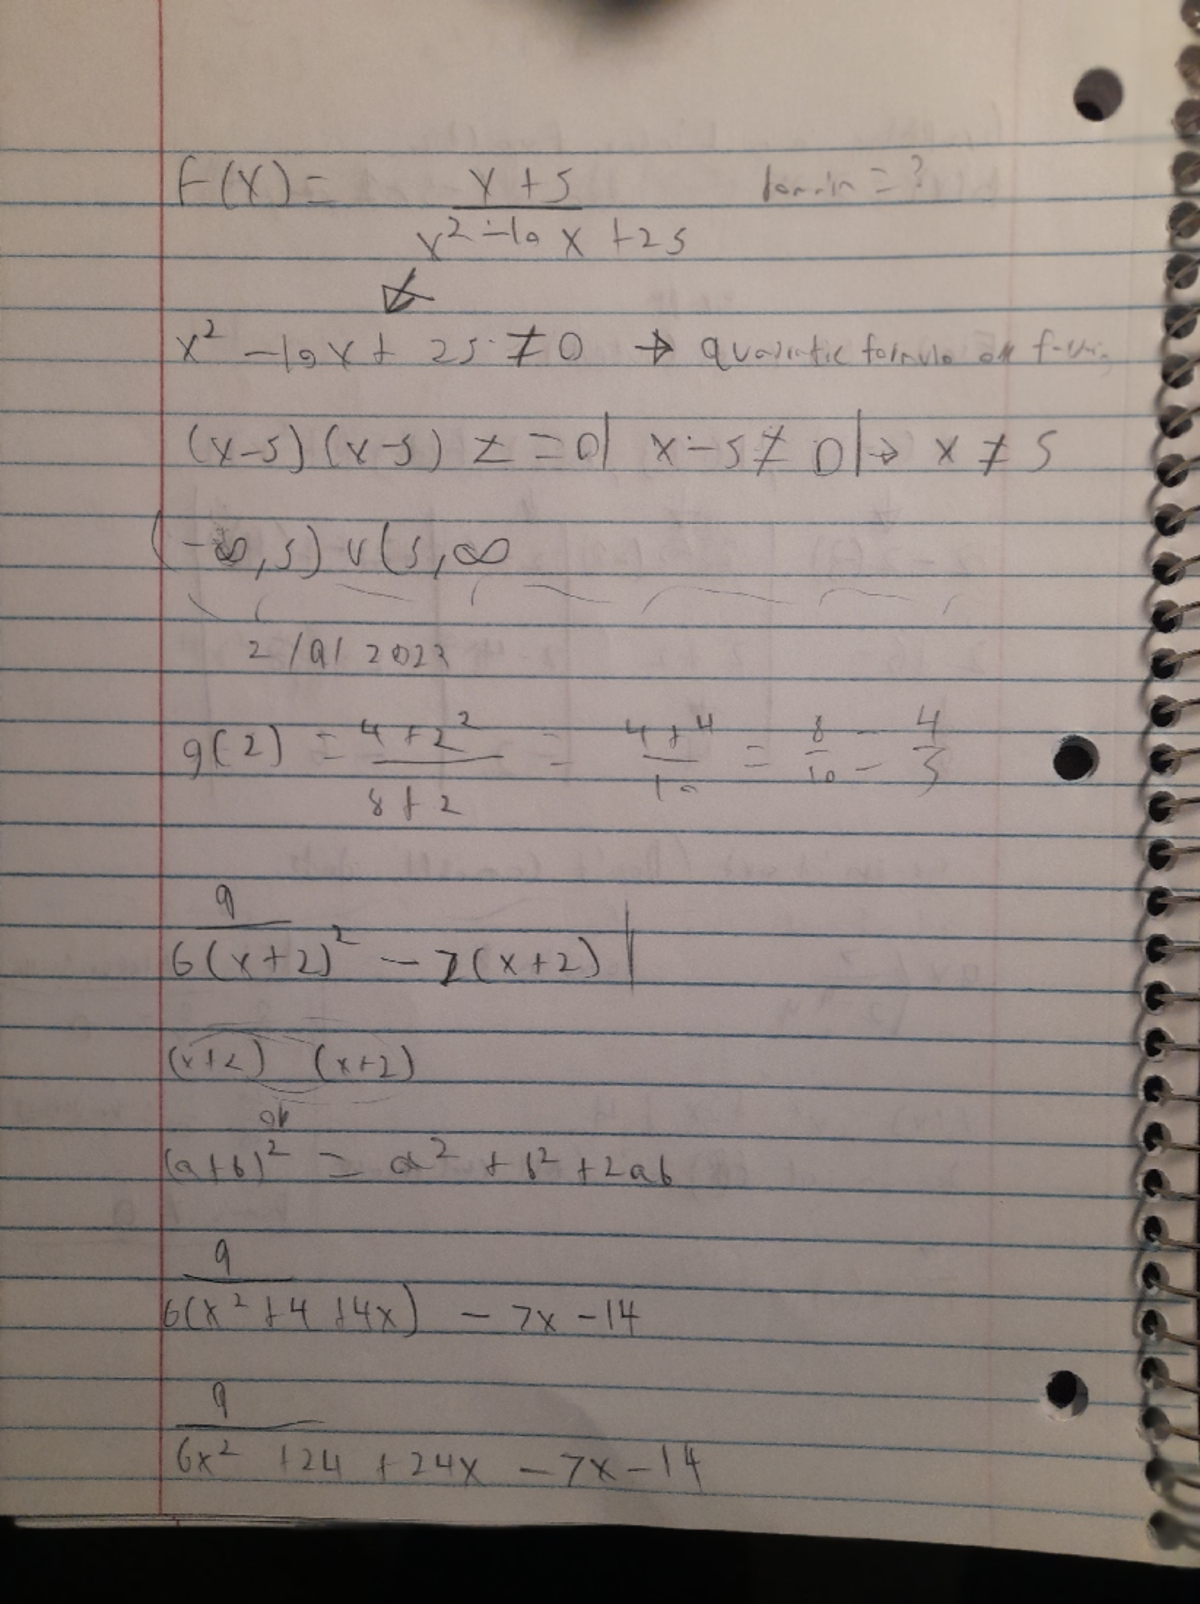 F(x) = (x + 5)/(x² - 10x + 25) Domain = ?
x² - 10x + 25 ≠ 0 → quadratic formula or
(x-5)(x-5) ≠ = 0 | x - 5 ≠ 0 | → x ≠ 5
(-∞,5) ∪ (5,∞
2/9/2023
g(2) = (4 + 2²)/(8 + 2) = (4 + 4)/10 = 8/10 = 4/5
9/(6(x+2)² - 7(x+2)) |
(x+2) (x+2)
or
(a+b)² = a² + b² + 2ab
9/(6(x² + 4 + 4x) - 7x - 14)
9/(6x² + 24 + 24x - 7x - 14)